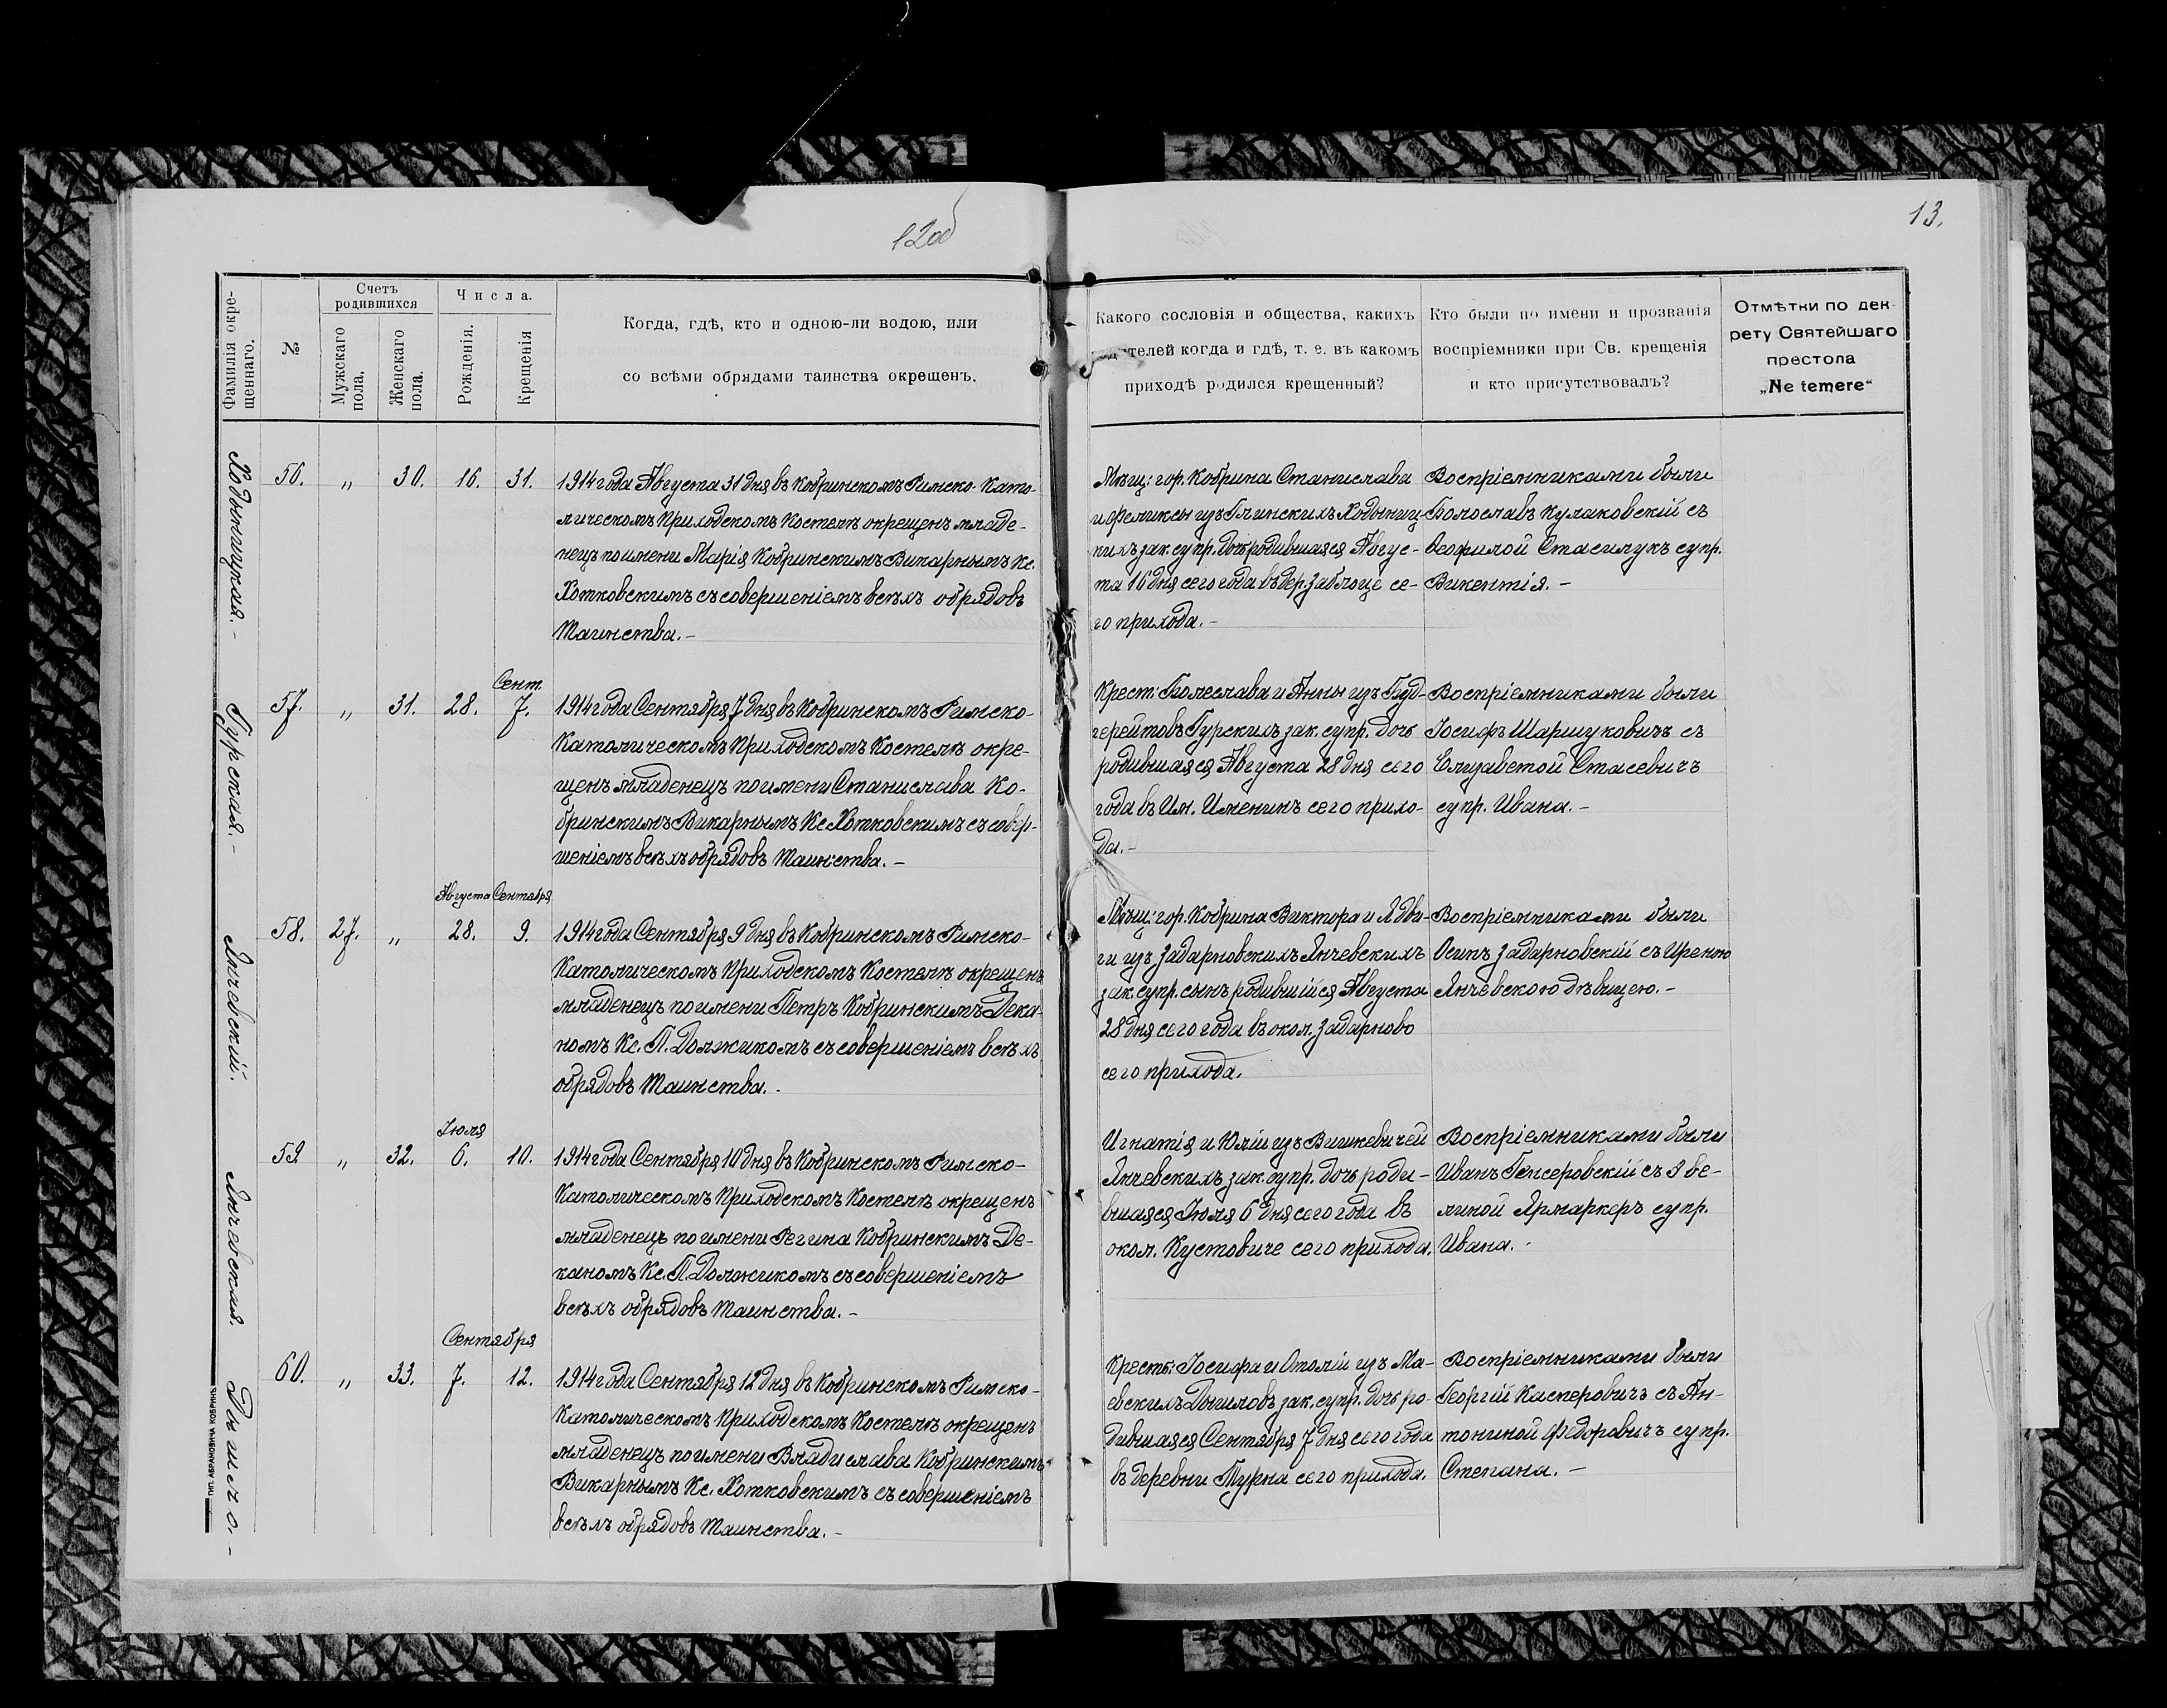 12об
13.
Фамилія окре-
щеннаго.
№
Счетъ
родившихся
Мужскаго
пола.
Женскаго
пола.
Числа.
Рожденія.
Крещенія
Когда, гдѣ, кто и одною-ли водою, или
со всѣми обрядами таинства окрещенъ.
Какого сословія и общества, какихъ
телей когда и гдѣ, т. е. въ какомъ
приходѣ родился крещенный?
Кто были по имени и прозванія
воспріемники при Св. крещенія
и кто присутствовалъ?
Отмѣтки по дек-
рету Святейшаго
престола
„Ne temere“
Ходыницкая.-
56. „ 30. 16. 31.
1914 года Августа 31 дня въ Кобринскомъ Римско-Като-
лическомъ Приходскомъ Костелѣ окрещенъ младе-
нецъ по имени Марія Кобринскимъ Викарнымъ Кс.
Хотковскимъ съ совершеніемъ всѣхъ обрядовъ
Таинства.-
Мѣщ: гор. Кобрина Станислава
и Феликсы изъ Глинскихъ Ходыниц-
кихъ зак. супр. дочь родившаяся Авгус-
та 16 дня сего года въ дер. Заблоце се-
го прихода.-
Воспріемниками были
Болославъ Кулаковскій съ
Теофилой Стасилукъ супр.
Викентія.-
Гурская.-
Сент.
57. „ 31. 28. 7.
1914 года Сентября 7 дня въ Кобринскомъ Римско-
Католическомъ Приходскомъ Костелѣ окре-
щенъ младенецъ по имени Станислава Ко-
бринскимъ Викарнымъ Кс. Хотковскимъ съ совер-
шеніемъ всѣхъ обрядовъ Таинства.-
Крест: Болеслава и Анны изъ
Гурскихъ зак. супр. дочь
родившаяся Августа 28 дня сего
года въ Им. Именинъ сего прихо-
да.-
Воспріемниками были
Іосифъ Шаршуковичъ съ
Елизаветой Стасевичъ
супр. Ивана.-
Янчевскій.
Августа Сентября
58. 27. „ 28. 9.
1914 года Сентября 9 дня въ Кобринскомъ Римско-
Католическомъ Приходскомъ Костелѣ окрещенъ
младенецъ по имени Петръ Кобринскимъ Дека-
номъ Кс. П. Должикомъ съ совершеніемъ всѣхъ
обрядовъ Таинства.-
Мѣщ: гор. Кобрина Виктора и Ядви-
ги изъ Задарновскихъ Янчевскихъ
зак. супр. сынъ родившійся Августа
28 дня сего года въ окол. Задарново
сего прихода.
Воспріемниками были
Осипъ Задарновскій съ Иреною
Янчевскою дѣвицею.-
Янчевская.
Іюля
59. „ 32. 6. 10.
1914 года Сентября 10 дня въ Кобринскомъ Римско-
Католическомъ Приходскомъ Костелѣ окрещенъ
младенецъ по имени Регина Кобринскимъ Де-
каномъ Кс. П. Должикомъ съ совершеніемъ
всѣхъ обрядовъ Таинства.-
Игнатія и Юліи изъ Вишкевичей
Янчевскихъ зак. супр. дочь роди-
вшаяся Іюля 6 дня сего года въ
окол. Кустовиче сего прихода.
Воспріемниками были
Иванъ Генсеровскій съ Эве-
линой Ярмаркфъ супр.
Ивана.-
Дышло.-
Сентября
60. „ 33. 7. 12.
1914 года Сентября 12 дня въ Кобринскомъ Римско-
Католическомъ Приходскомъ Костелѣ окрещенъ
младенецъ по имени Владислава Кобринскимъ
Викарнымъ Кс. Хотковскимъ съ совершеніемъ
всѣхъ обрядовъ Таинства.-
Кресть: Іосифа и Отоліи изъ Ма-
евскихъ Дышловъ зак. супр. дочь ро-
дившаяся Сентября 7 дня сего года
въ деревни Турна сего прихода.
Воспріемниками были
Георгій Касперовичъ съ Ан-
тониной Федоровичъ супр.
Степана.-
ТИП. АБРАМОВИЧА КОБРИНЪ